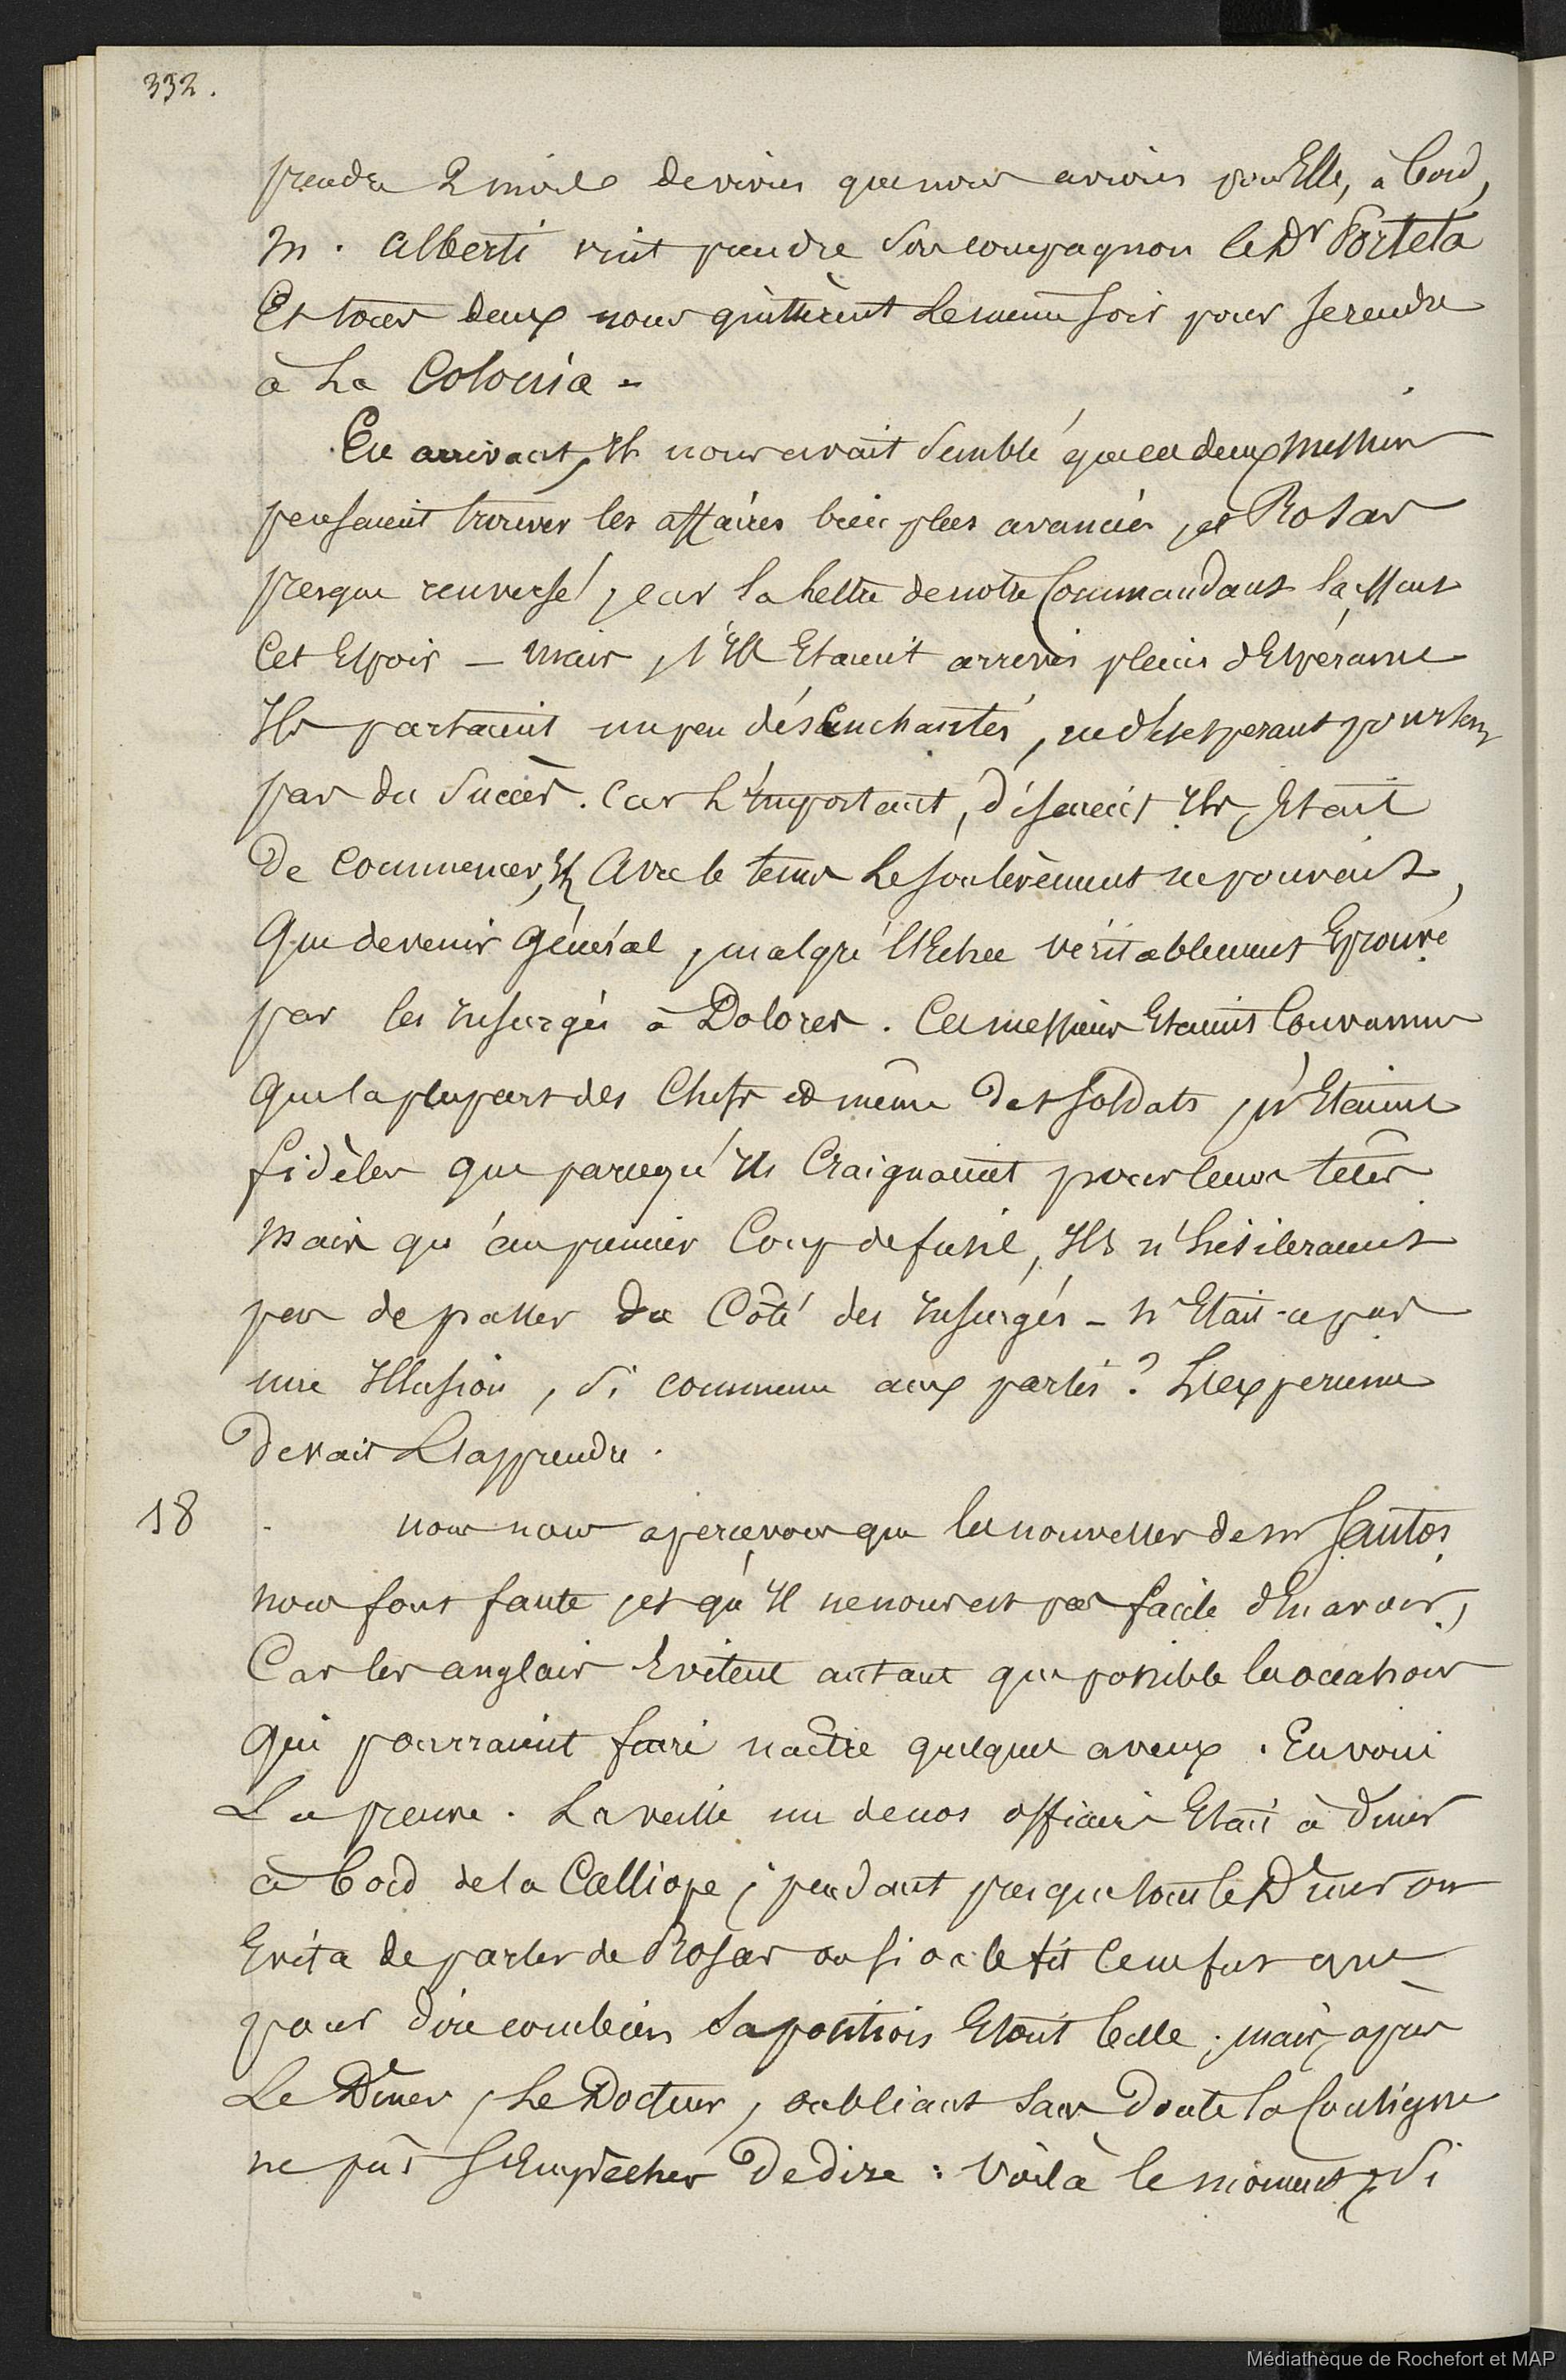 332.
prendre 2 mois de vivres que nous avions pour Elle, à bord,
M. Alberti vint prendre son compagnon le Dr Portela
Et tous deux nous quittèrent le même soir pour se rendre
à La Colonia -
En arrivant, Il nous avait semblé que ces deux messieurs
pensaient trouver les affaires bien plus avancées, et Rosas
presque renversé, car la lettre de notre Commandant laissait
Cet Espoir — Mais, s'Ils Etaient arrivés pleins d'Espérance
Ils partaient un peu désenchantés, ne désespérant pourtant
pas du succès. Car L'Important, disaient Ils, Etait
De commencer, Et Avec le tems Le soulèvement ne pouvait,
Que devenir Général, malgré l'Echec véritablement Eprouvé
par les Insurgés à Dolores. Ces messieurs Etaient Convaincus
Que la plupart des Chefs et même des soldats, n'Etaient
fidèles que parcequ'Ils Craignaient pour leurs têtes
Mais qu'au premier Coup de fusil, Ils n'hésiteraient
pas de passer du Côté des Insurgés - N'Etait-ce pas
une Illusion, si commune aux partis ? L'expérience
Devait L'apprendre.
18 Nous nous apercevons que les nouvelles de mr Santos
nous font faute, et qu'Il ne nous est pas facile d'En avoir,
Car les anglais Evitent autant que possible les occasions
Qui pourraient faire naître quelques aveux. En voici
La preuve. La veille un de nos officiers Etait à diner
à bord de la Calliope ; pendant presque tout le Dîner on
Evita de parler de Rosas ou si on le fit ce ne fut que
pour dire combien sa position Etait belle ; mais, après
Le Dîner, Le Docteur, oubliant sans Doute la Consigne
ne pût s'Empêcher De dire : Voilà le moment, si
Médiathèque de Rochefort et MAP